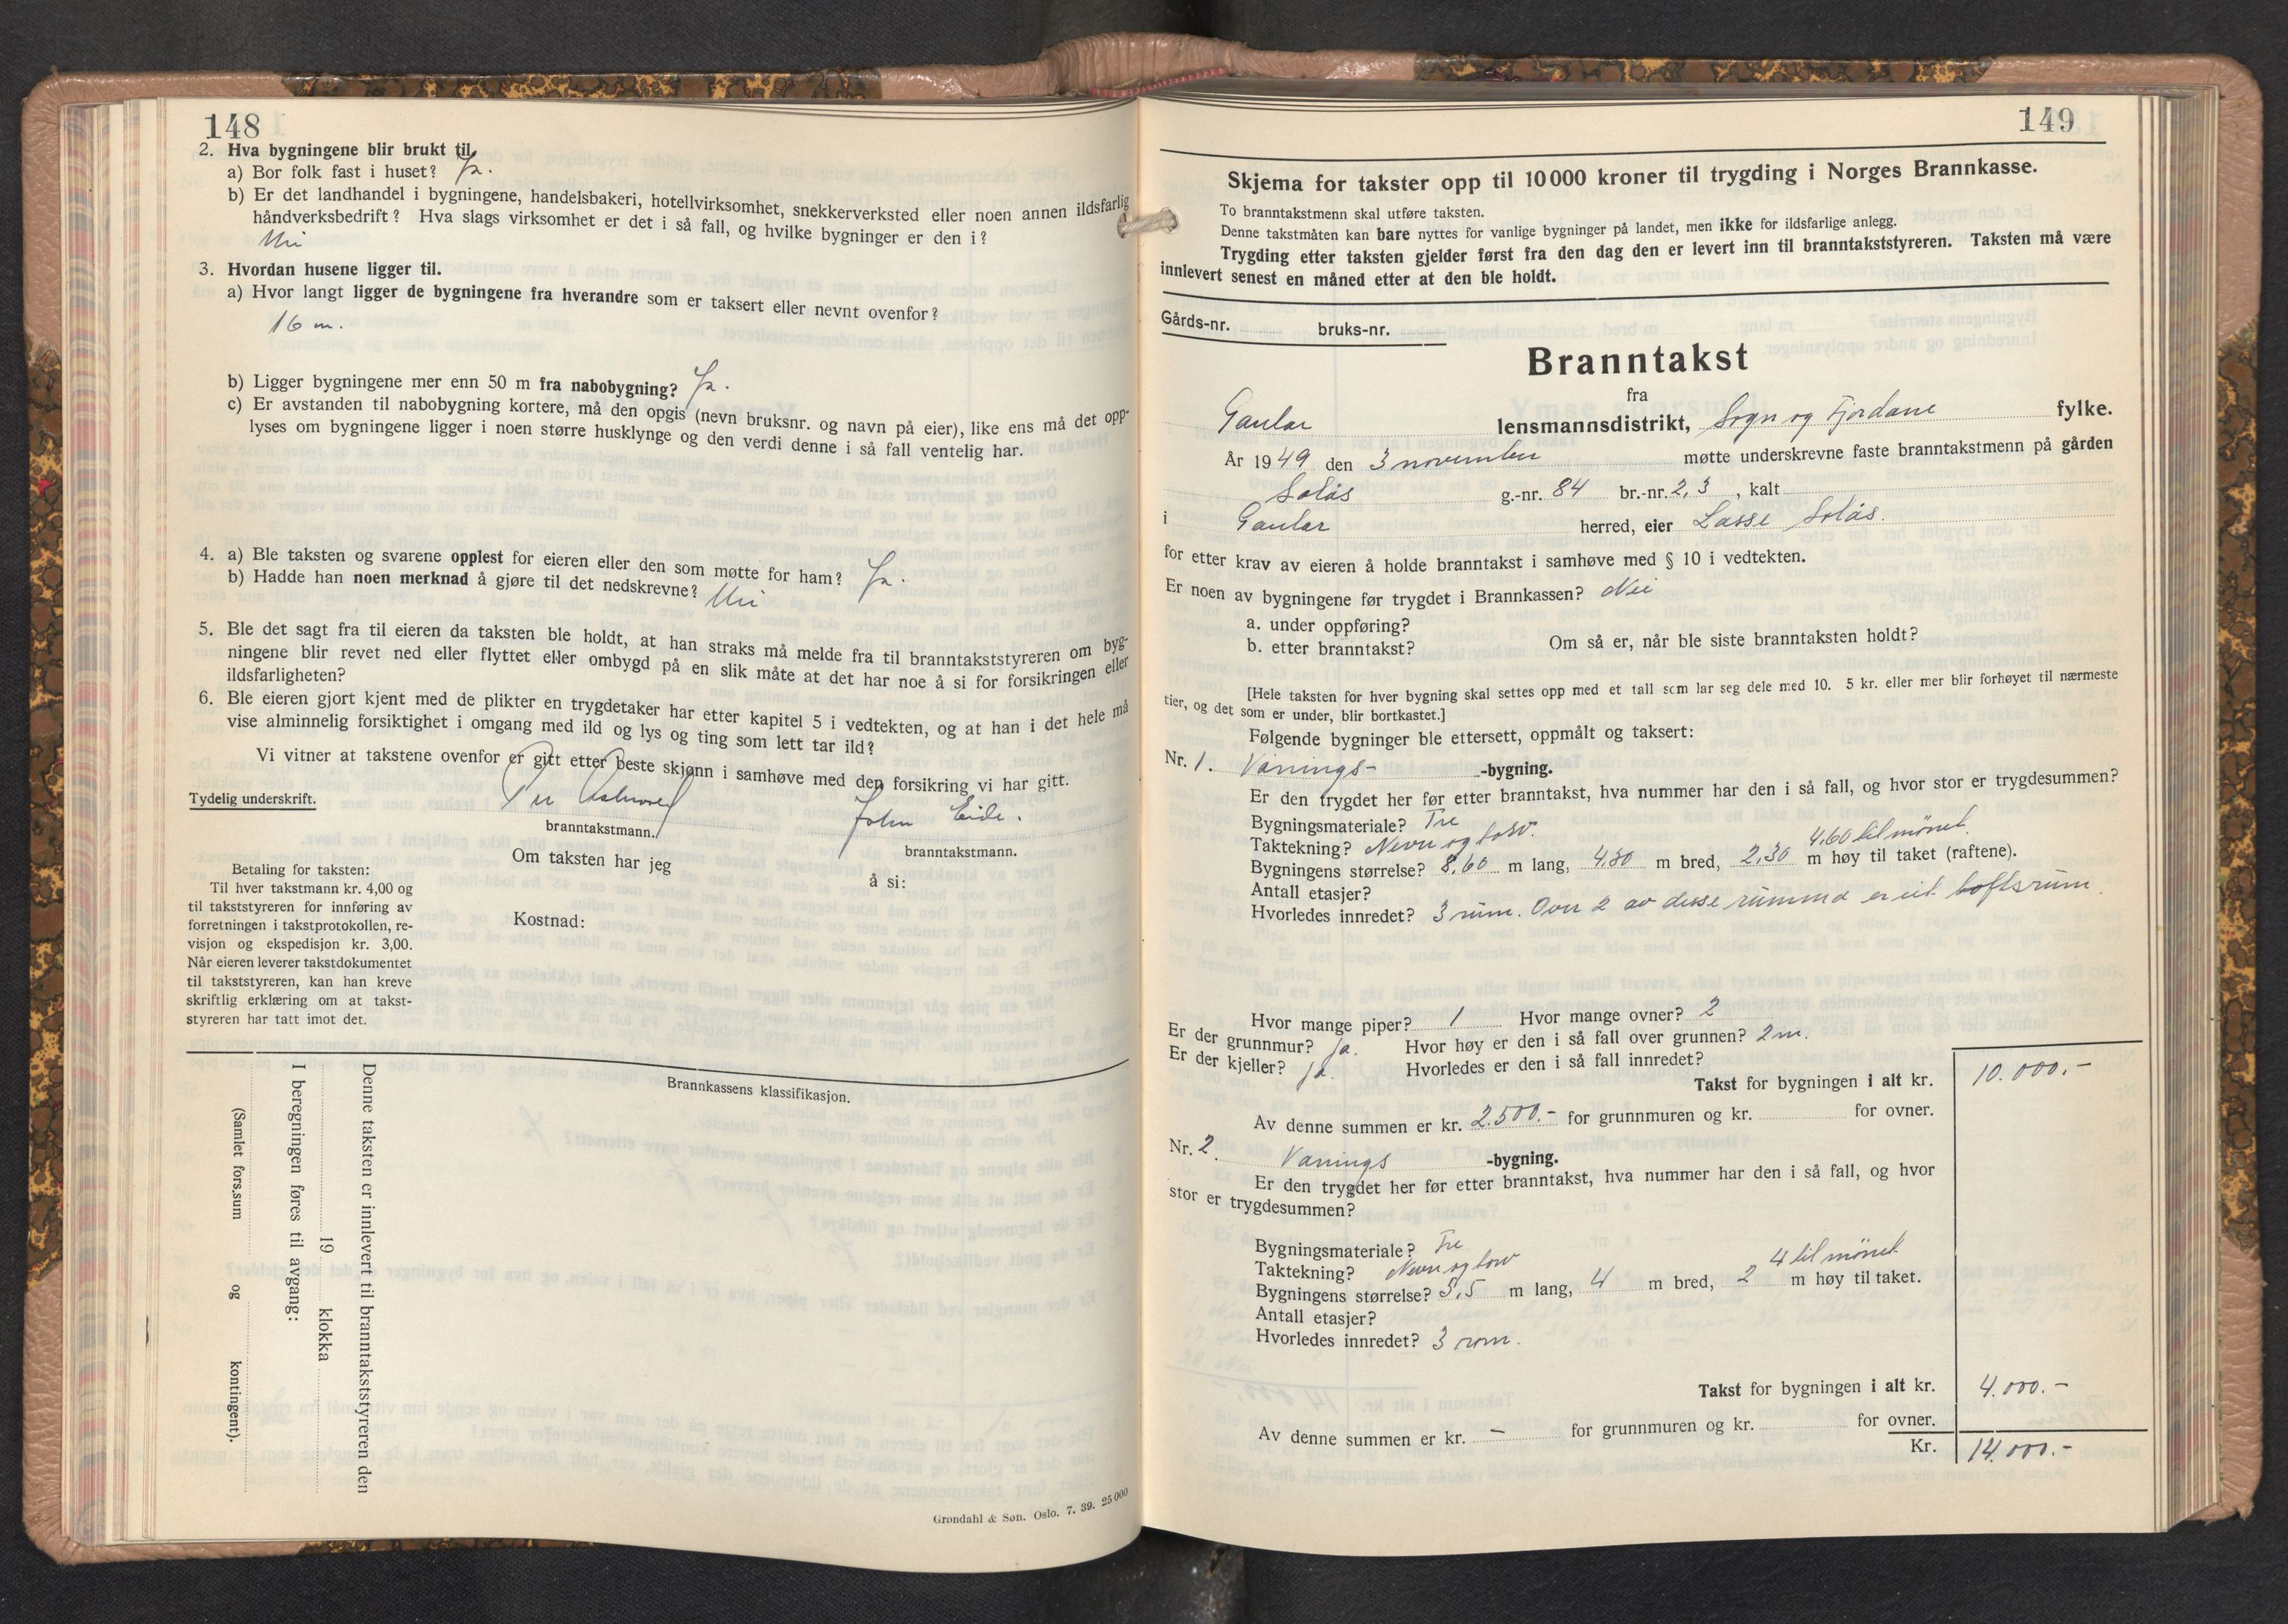 148
2. Hva bygningene blir brukt til.
a) Bor folk fast i huset? Ja.
b) Er det landhandel i bygningene, handelsbakeri, hotellvirksomhet, snekkerverksted eller noen annen ildsfarlig
håndverksbedrift? Hva slags virksomhet er det i så fall, og hvilke bygninger er den i?
Nei
3. Hvordan husene ligger til.
a) Hvor langt ligger de bygningene fra hverandre som er taksert eller nevnt ovenfor?
16 m.
b) Ligger bygningene mer enn 50 m fra nabobygning? Ja.
c) Er avstanden til nabobygning kortere, må den opgis (nevn bruksnr. og navn på eier), like ens må det opp-
lyses om bygningene ligger i noen større husklynge og den verdi denne i så fall ventelig har.
4. a) Ble taksten og svarene opplest for eieren eller den som møtte for ham? Ja.
b) Hadde han noen merknad å gjøre til det nedskrevne? Nei
5. Ble det sagt fra til eieren da taksten ble holdt, at han straks må melde fra til branntakststyreren om byg-
ningene blir revet ned eller flyttet eller ombygd på en slik måte at det har noe å si for forsikringen eller
ildsfarligheten?
6. Ble eieren gjort kjent med de plikter en trygdetaker har etter kapitel 5 i vedtekten, og at han i det hele må
vise alminnelig forsiktighet i omgang med ild og lys og ting som lett tar ild?
Vi vitner at takstene ovenfor er gitt etter beste skjønn i samhøve med den forsikring vi har gitt.
Tydelig underskrift. Per John Eide.
branntakstmann. branntakstmann.
Om taksten har jeg å si:
Kostnad:
Betaling for taksten:
Til hver takstmann kr. 4,00 og
til takststyreren for innføring av
forretningen i takstprotokollen, re-
visjon og ekspedisjon kr. 3,00.
Når eieren leverer takstdokumentet
til takststyreren, kan han kreve
skriftlig erklæring om at takst-
styreren har tatt imot det.
Brannkassens klassifikasjon.
Denne taksten er innlevert til branntakststyreren den
19 klokka
I beregningen føres til avgang:
(Samlet fors.sum og kontingent).
Grøndahl & Søn. Oslo. 7. 39. 25 000
149
Skjema for takster opp til 10 000 kroner til trygding i Norges Brannkasse.
To branntakstmenn skal utføre taksten.
Denne takstmåten kan bare nyttes for vanlige bygninger på landet, men ikke for ildsfarlige anlegg.
Trygding etter taksten gjelder først fra den dag den er levert inn til branntakststyreren. Taksten må være
innlevert senest en måned etter at den ble holdt.
Gårds-nr. bruks-nr.
Branntakst
fra
Gaular lensmannsdistrikt, Sogn og Fjordane fylke.
År 1949 den 3 november møtte underskrevne faste branntakstmenn på gården
Solås g.-nr. 84 br.-nr. 2, 3, kalt
i Gaular herred, eier Lasse Solås.
for etter krav av eieren å holde branntakst i samhøve med § 10 i vedtekten.
Er noen av bygningene før trygdet i Brannkassen? Nei
a. under oppføring?
b. etter branntakst? Om så er, når ble siste branntaksten holdt?
[Hele taksten for hver bygning skal settes opp med et tall som lar seg dele med 10. 5 kr. eller mer blir forhøyet til nærmeste
tier, og det som er under, blir bortkastet.]
Følgende bygninger ble ettersett, oppmålt og taksert:
Nr. 1. Vånings- -bygning.
Er den trygdet her før etter branntakst, hva nummer har den i så fall, og hvor stor er trygdesummen?
Bygningsmateriale? Tre
Taktekning? Nevu og torv. 4,60 til mønet
Bygningens størrelse? 8,60 m lang, 4,80 m bred, 2,30 m høy til taket (raftene).
Antall etasjer?
Hvorledes innredet? 3 rum. Over 2 av disse rumma er eit loftsrum.
Hvor mange piper? 1 Hvor mange ovner? 2
Er der grunnmur? ja. Hvor høy er den i så fall over grunnen? 2 m.
Er der kjeller? ja. Hvorledes er den i så fall innredet?
Takst for bygningen i alt kr. 10.000.-
Av denne summen er kr. 2.500.- for grunnmuren og kr. for ovner.
Nr. 2. Vånings -bygning.
Er den trygdet her før etter branntakst, hva nummer har den i så fall, og hvor
stor er trygdesummen?
Bygningsmateriale? Tre
Taktekning? Nevu og torv 4 til mønet
Bygningens størrelse? 5,5 m lang, 4 m bred, 2 m høy til taket.
Antall etasjer?
Hvorledes innredet? 3 rom.
Takst for bygningen i alt kr. 4.000.-
Av denne summen er kr. - for grunnmuren og kr. for ovner.
Kr. 14.000.-